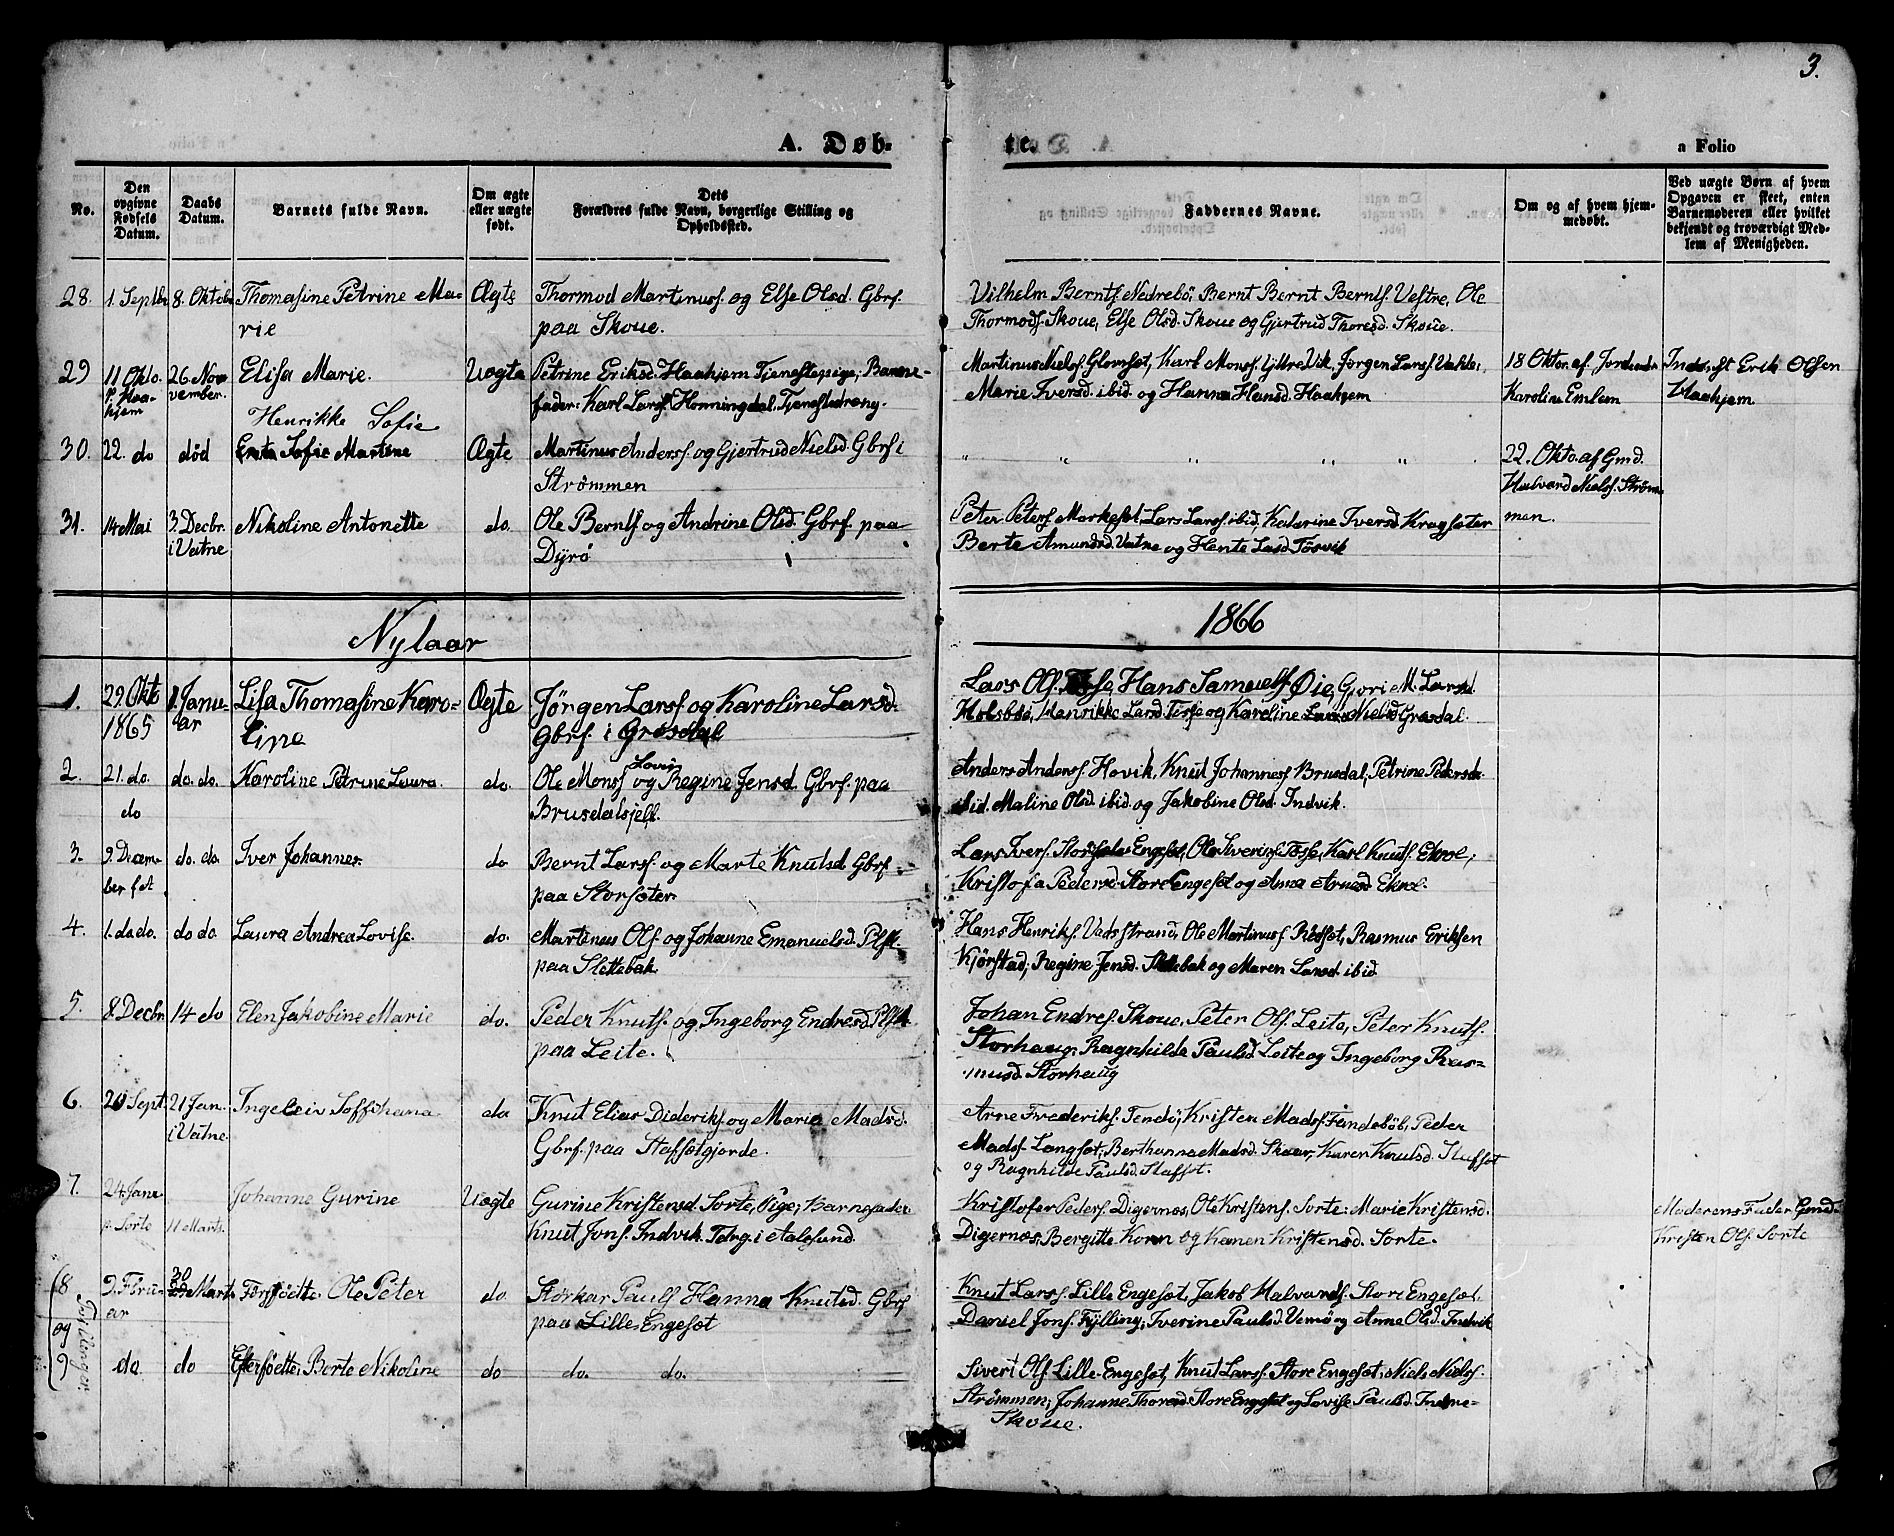 3.
A. Døb-
te.
a Folio
No.
Den
opgivne
Fødsels
Datum.
Daabs
Datum.
Barnets fulde Navn.
Om ægte
eller uægte
født.
Dets
Forældres fulde Navn, borgerlige Stilling og
Opholdssted.
Faddernes Navne.
Om og af hvem hjem-
medøbt.
Ved uægte Børn af hvem
Opgaven er skeet, enten
Barnemoderen eller hvilket
bekjendt og troværdigt Med-
lem af Menigheden.
28. 1. Septbr 8. Oktobr Thomasine Petrine Ma- Ægte Thormod Martinusf. og Else Olsd. Gbrf.
rie paa Skoue.
Vilhelm Berntf. Nedrebö, Bernt Bernt Berntf. Vestre, Ole
Thormodf. Skoue, Else Olsd. Skoue og Gjertrud Thoresd. Skoue.
29 11 Okto. 26 Nov Elisa Marie. Uægte Petrine Eriksd. Haahjem Tjenestepige, Barne-
p. Haa- vember. fader: Karl Larsf. Honningdal, Tjenestedreng.
hjem
Martinus Nielsf. Glomset, Karl Monsf. Yttre Vik, Jørgen Larsf.
Marie Iversd. ibid. og Hanna Hansd. Haahjem
18 Oktor. af Jordemdr
Karoline Emlem
Inds. st Erik Olsen
Haahjem
Henrikke Sofie
30. 22. do død Sofie Martine Ægte Martinus Andersf. og Gjertrud Nielsd. Gbrf. i
Strømmen
" " " " " "
22. Okto. af Gmd.
Halvard Nielsf. Strøm-
men.
31. 14 Mai 3. Decbr. Nikoline Antonette do. Ole Berntf. og Andrine Olsd. Gbrf. paa
i Vatne Dyrö
Peter Petersf. Markeset, Lars Larsf. ibid, Katarine Iversd. Kragsæter
Berte Amundsd. Vatne og Hente Lasd. Tösvik
Nylaar
1866
1. 29. Okto 1. Janu- Lisa Thomasine Karo- Ægte Jørgen Larsf. og Karoline Larsd.
1865 ar line Gbrf. i Grøsdal
Lars Olf. Hans Samuelf. Öie, Gjori M. Larsd.
Holsböe, Henrikke Larsd. Tösse og Karoline Nielsd. Grøsdal.
2. 21. do. do. do. Karoline Petrine Laura. do. Ole Monsf. og Lovise Regine Jensd. Gbrf. paa
do Brusdalsjell.
Anders Andersf. Hovik, Knut Johannesf. Brusdal, Petrine Petersd.
ibid. Maline Olsd. ibid. og Jakobine Olsd. Indvik.
3. 9. Decem- do. do. Iver Johannes. do Bernt Larsf. og Marte Knutsd. Gbrf.
ber paa Storsæter.
Lars Iversf. Store Engeset, Ole Tösse, Karl Knutf.
Kristofa Pedersd. Store Engeset og Anna Arnesd.
4. 1. do do. do do. Laura Andrea Lovise. do. Martinus Olf. og Johanne Emanuelsd. Plsf.
paa Slettebak.
Hans Henriksf. Vadstrand, Ole Martinusf. Resset, Rasmus Eriksen
Kjörstad, Regine Jensd. Slettebak og Maren Larsd. ibid
5. 8. Decbr. 14 do Elen Jakobine Marie do. Peder Knutf. og Ingeborg Endresd. Plsf.
paa Leite.
Johan Endresf. Skoue, Peter Olf. Leite, Peter Knutf.
Storhaug, Ragnhilde Paulsd. Leite og Ingeborg Ras-
musd. Storhaug
6. 20 Sept. 21 Jan. Ingeleiv Soffihana do Knut Elias Dideriksf. og Marie Madsd.
i Vatne. Gbrf. paa Stafsetgjerde.
Arne Frederiksf. Tendö, Kristen Madsf. Peder
Madsf. Langset, Berthanna Madsd. Skaar, Karen Knutsd. Stafset
og Ragnhilde Paulsd. Stafset.
7. 24 Janr 11 Marts. Johanne Gurine Uægte Gurine Kristensd. Sorte, Pige, Barnefader
p. Sorte Knut Jonsf. Indvik. Tdrg. i Aalesund.
Kristofer Pedersf. Digernæs, Ole Kristensf. Sorte, Marie Kristensd.
Digernæs, Bergitte og Karen Kristensd. Sorte.
Moderens Fader Gmd.
Kristen Olf. Sorte
8 9. Febru- 30 Marts Førsfødte, Ole Peter do. Storkar Paulf. Hanna Knutsd. Gbrf
ar paa Lille-Engeset
og
Tvillinger.
Knut Larsf. Lille Engeset, Jakob Halvardsf. Store Engeset,
Daniel Jonsf. Fylling, Iverine Paulsd. Uemö og Anne Olsd. Indvik
9 do. do Efterfødte, Berte Nikoline do do. do.
Sivert Olf. Lille-Engeset, Knut Larsf. Store Engeset, Niels Nielsf.
Strømmen, Johanne Thoresd. Store Engeset og Lovise Paulsd. Indre-
Skoue.